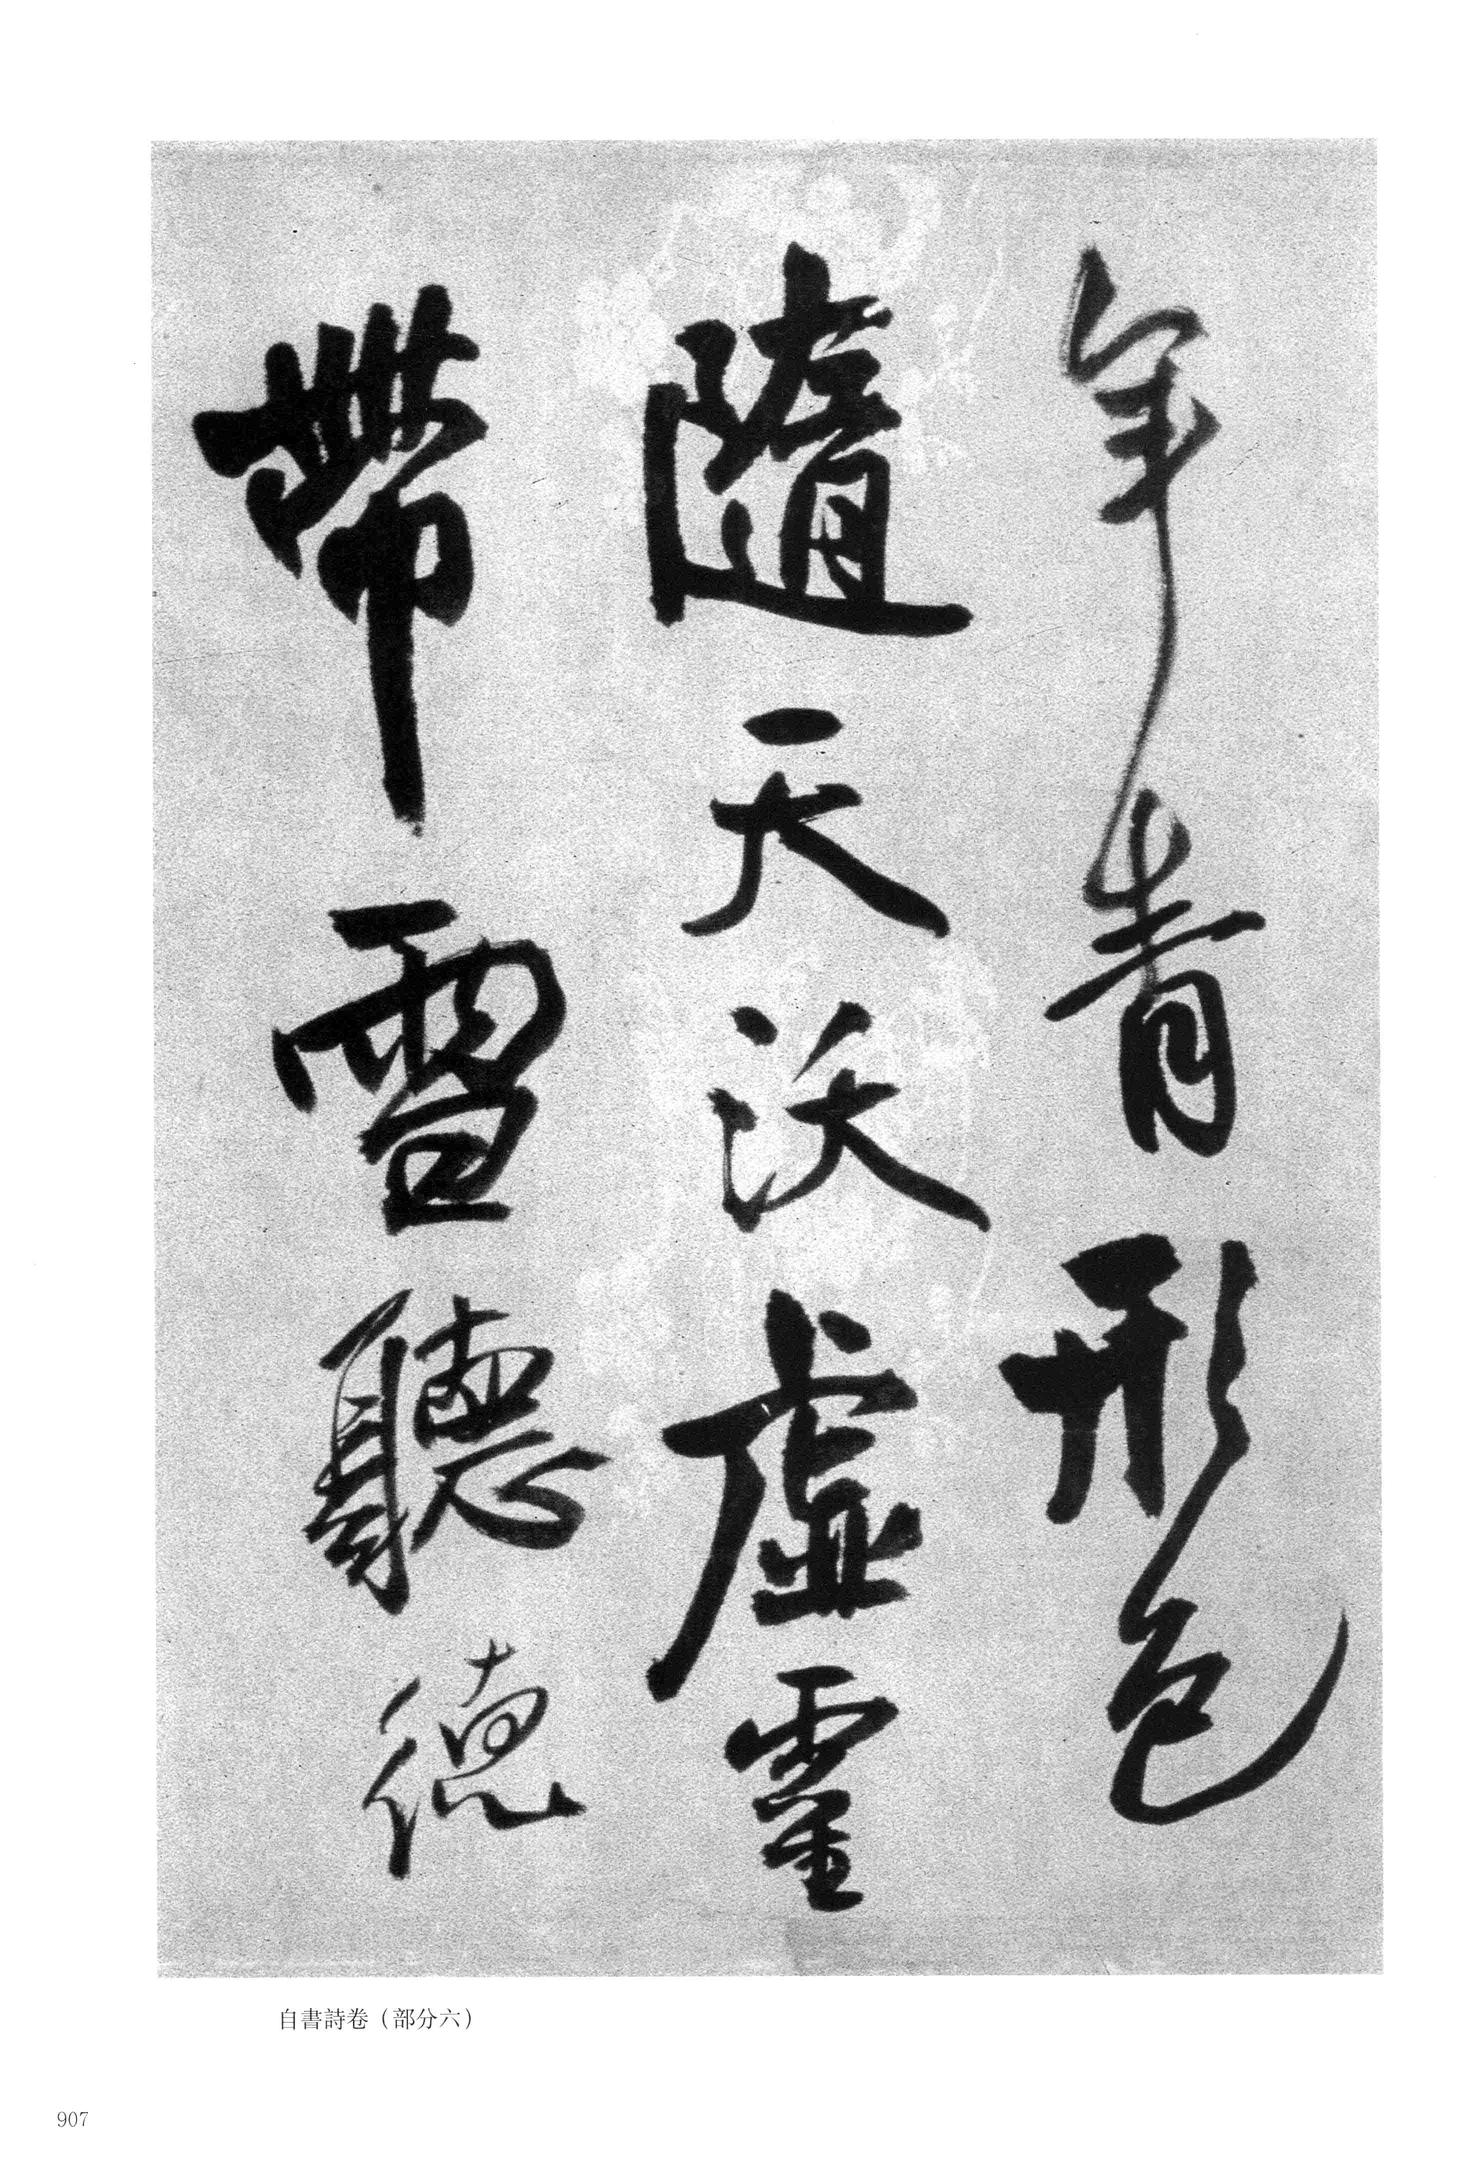 年青形色
隨天沃虛靈
帶雪聽德
自書詩卷（部分六）
907